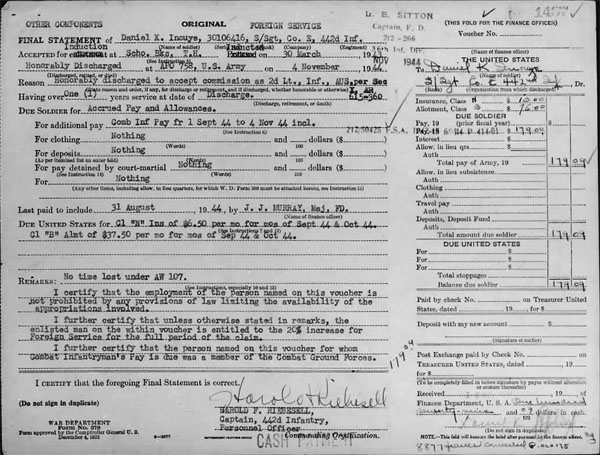 OTHER COMPONENTS ORIGINAL FOREIGN SERVICE
FINAL STATEMENT OF Daniel K. Inouye, 30106416, S/Sgt, Co. E, 442d Inf.
(Name of soldier) (Company) (Regiment)
Induction Inducted
ACCEPTED for at Scho. Bks, T.H. on 30 March 1943
(See Instruction 4)
Honorably Discharged at APO 758, U.S. Army on 4 November 1944
(Discharged, retired, or died)
Reason Honorably discharged to accept commission as 2d Lt., Inf, AUS, per Sec
X, AR
Having over One (1) years service at date of Discharge. 615-360
(Discharge, retirement, or death)
DUE SOLDIER FOR Accrued Pay and Allowances.
For additional pay Comb Inf Pay fr 1 Sept 44 to 4 Nov 44 incl.
(See Instruction 6)
For clothing Nothing and dollars ($ )
For deposits Nothing and dollars ($ )
(As per itemized list on enter fold)
For pay detained by court-martial Nothing and dollars ($ )
(See Instruction 14)
For Nothing and dollars ($ )
Last paid to include 31 August 1944, by J. J. MURRAY, Maj, FD.
(Name of finance officer)
DUE UNITED STATES for Cl "N" Ins of $6.50 per mo for mos of Sept 44 & Oct 44.
Cl "B" Almt of $37.50 per mo for mos of Sep 44 & Oct 44.
REMARKS: No time lost under AW 107.
(See Instructions, especially 10 and 12)
I certify that the employment of the person named on this voucher is
not prohibited by any provisions of law limiting the availability of the
appropriations involved.
I further certify that unless otherwise stated in remarks, the
enlisted man on the within voucher is entitled to the 20% increase for
Foreign Service for the full period of the claim.
I further certify that the person named on this voucher for whom
Combat Infantryman's Pay is due was a member of the Combat Ground Forces.
I CERTIFY that the foregoing Final Statement is correct,
Harold F. Riebesell
(Do not sign in duplicate)
HAROLD F. RIEBESELL,
Captain, 442d Infantry,
Personnel Officer
Commanding Organization.
WAR DEPARTMENT
Form No. 370
Form approved by the Comptroller General U. S.
CASH PAYMENT
L. E. SITTON
Captain, F. D.
212-266
NOV 1944
(THIS FOLD FOR THE FINANCE OFFICER)
Voucher No.
(Name of finance officer)
THE UNITED STATES
To Daniel K. Inouye, Dr.
(Name of soldier)
S/Sgt Co E 442
(Organization from which discharged)
Insurance, Class N $ 13.00
Allotment, Class B $ 75.00
PAY:
Pay (prior fiscal year) $
179 09
Interest
Allow. in lieu qrs
Auth
Total pay of Army, 19 179 09
Allow. in lieu subsistence
Auth
Clothing
Auth
Travel pay
Auth
Deposits, Deposit Fund
Auth
Total amount due soldier 179 09
DUE UNITED STATES
For $
For
For
Total stoppages
Balance due soldier 179 09
Paid by check No. on Treasurer United
States, dated , 19 for $
Deposit with my new account
$
(Signature of soldier)
Post Exchange paid by Check No. on
TREASURER UNITED STATES, dated , 19
for $
179 09
(To be completely filled in before signature by payee without alteration or erasure)
Received , 19 , of
Finance Department, U. S. A. One hundred
seventy nine and 09 cents
in cash, in full payment of the above account.
$
(Do not sign in duplicate) (Signature of soldier)